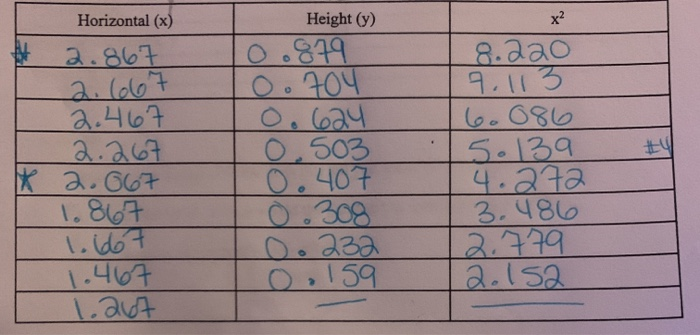 Horizontal (x) Height (y) x²
* 2.867 0.879 8.220
2.667 0.704 7.113
2.467 0.624 6.086
2.267 0.503 5.139 #4
* 2.067 0.407 4.272
1.867 0.308 3.486
1.667 0.232 2.779
1.467 0.159 2.152
1.267 — —